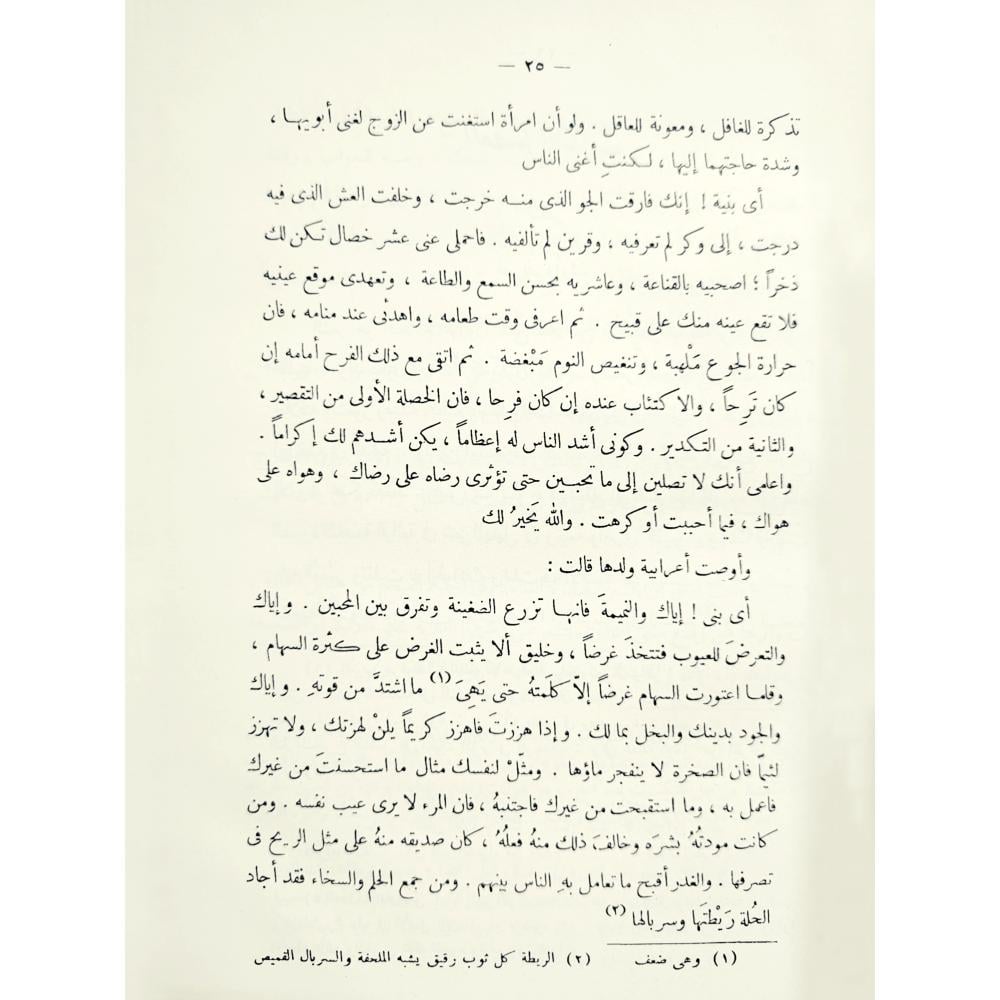 — ٢٥ —
تذكرة للغافل ، ومعونة للعاقل . ولو أن امرأة استغنت عن الزوج لغنى أبويها ،
وشدة حاجتهما إليها ، لكنتِ أغنى الناس
أى بنية ! إنك فارقت الجو الذى منه خرجت ، وخلفت العش الذى فيه
درجت ، إلى وكر لم تعرفيه ، وقرين لم تألفيه . فاحملى عنى عشر خصال تكن لك
ذخراً ؛ اصحبيه بالقناعة ، وعاشريه بحسن السمع والطاعة ، وتعهدى موقع عينيه
فلا تقع عينه منك على قبيح . ثم اعرفى وقت طعامه ، واهدئى عند منامه ، فان
حرارة الجوع مَلْهبة ، وتنغيص النوم مَبْغضة . ثم اتقى مع ذلك الفرح أمامه إن
كان تَرِحاً ، والاكتئاب عنده إن كان فرِحا ، فان الخصلة الأولى من التقصير ،
والثانية من التكدير . وكونى أشد الناس له إعظاماً ، يكن أشدهم لك إكراماً .
واعلمى أنك لا تصلين إلى ما تحبين حتى تؤثرى رضاه على رضاك ، وهواه على
هواك ، فيما أحببت أو كرهت . والله يَخيرُ لك
وأوصت أعرابية ولدها قالت :
أى بنى ! إياك والنميمةَ فانها تزرع الضغينة وتفرق بين المحبين . وإياك
والتعرضَ للعيوب فتتخذَ غرضاً ، وخليق ألا يثبت الغرض على كثرة السهام ،
وقلما اعتورت السهام غرضاً إلاّ كلَمتهُ حتى يَهِىَ (١) ما اشتدَّ من قوتهِ . وإياك
والجود بدينك والبخل بما لك . وإذا هززتَ فاهزز كريماً يلنْ لهزتك ، ولا تهزز
لئيماً فان الصخرة لا ينفجر ماؤها . ومثّلْ لنفسك مثال ما استحسنتَ من غيرك
فاعمل به ، وما استقبحت من غيرك فاجتنبهُ ، فان المرء لا يرى عيب نفسه . ومن
كانت مودتُهُ بشرَه وخالفَ ذلك منهُ فعلُهُ ، كان صديقه منهُ على مثل الريح فى
تصرفها . والغدر أقبح ما تعامل بهِ الناس بينهم . ومن جمع الحلم والسخاء فقد أجاد
الحُلة رَيْطتَها وسربالها (٢)
(١) وهى ضعف (٢) الريطة كل ثوب رقيق يشبه الملحفة والسربال القميص